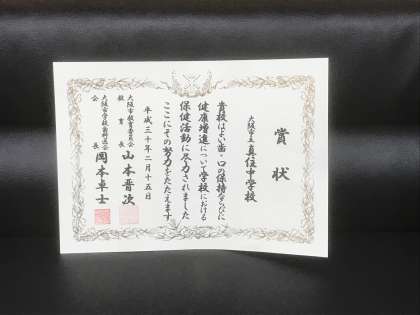 賞状
大阪市立真住中学校
貴校はよい歯・口の保持ならびに
健康増進について学校における
保健活動に尽力されました
ここにその努力をたたえます
平成三十年二月十五日
大阪市教育委員会
教育長 山本晋次
大阪市学校歯科医会
会長 岡本卓士